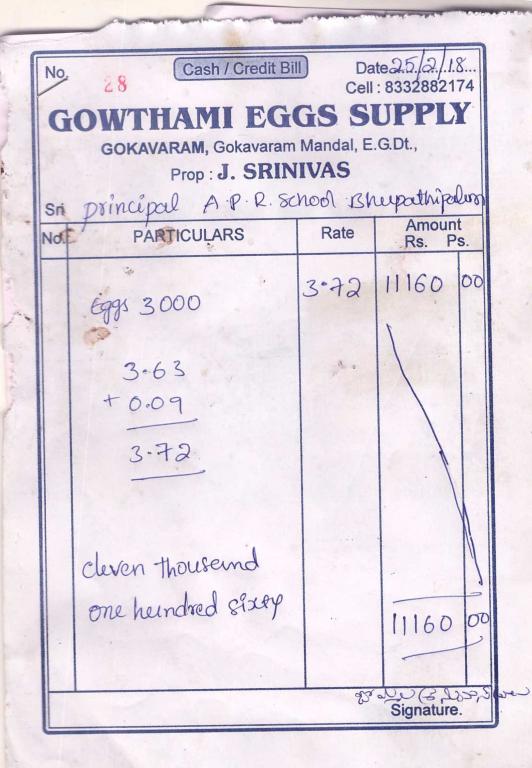 No. 28 Cash / Credit Bill Date 25/2/18...
Cell : 8332882174
GOWTHAMI EGGS SUPPLY
GOKAVARAM, Gokavaram Mandal, E.G.Dt.,
Prop : J. SRINIVAS
Sri principal A.P.R. School Bhupathipalem
No. PARTICULARS Rate Amount
Rs. Ps.
Eggs 3000 3.72 11160 00
3.63
+ 0.09
3.72
eleven thousand
one hundred sixty
11160 00
Signature.